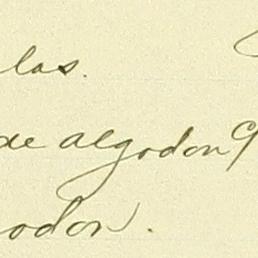 las.
de algodon 9
godon.